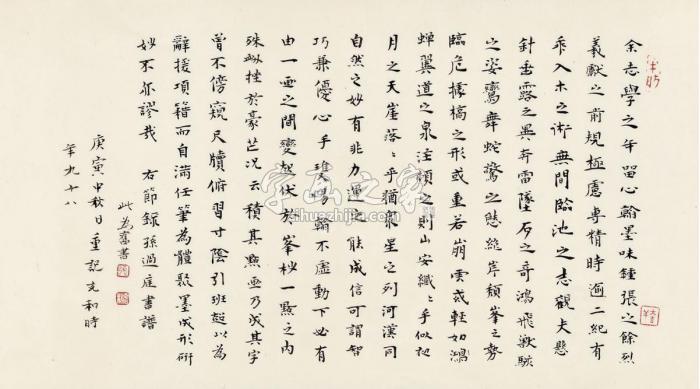 余志學之年留心翰墨味鍾張之餘烈
羲獻之前規極慮專精時逾二紀有
乖入木之術無間臨池之志觀夫懸
針垂露之異奔雷墜石之奇鴻飛獸駭
之姿鸞舞蛇驚之態絕岸頹峯之勢
臨危據槁之形或重若崩雲或輕如鴻
蟬翼道之泉注頓之則山安纖〻乎似初
月之天崖落〻乎猶眾星之列河漢同
自然之妙有非力運之能成信可謂智
巧兼優心手雙暢翰不虛動下必有
由一畫之間變起伏於峯杪一點之內
殊衄挫於豪芒況云積其點畫乃成其字
曾不傍窺尺牘俯習寸陰引班超以為
辭援項籍而自滿任筆為體聚墨成形研
妙不亦謬哉 右節錄孫過庭書譜
此為舊書
庚寅中秋日重記充和時
年九十八
字画之家